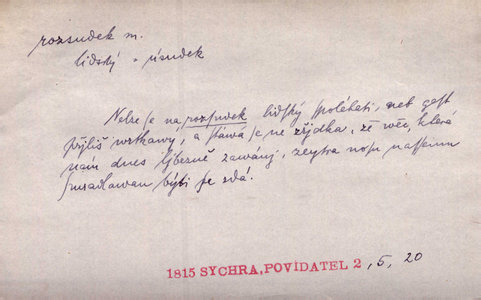 rozsudek m.
lidský = úsudek
Nelze se na rozsudek lidský spoléhati, neb gest
přjliš wrtkawý, a stáwá se ne zřjdka, že wěc, která
nám dnes ljbezně zawánj, zeytra nosu nassemu
smradlawau býti se zdá.
1815 SYCHRA, POVÍDATEL 2, 5, 20